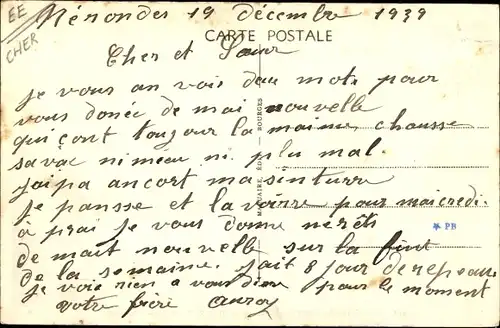 EE
CHER
Nérondes 19 décembre 1939
CARTE POSTALE
Cher et Sœur
je vous an vois deu mots pour
vous donée de mai nouvelle
qui çont toujour la maime chausse
sava ni mieu ni plu mal.
jaipa ancort ma sinture
je pansse et lavoire pour maicredi
à prai je vous donne nerêts
de mait nouvelle sur la fint
de la semaine. fait 8 jour de repeau
je voie rien a vous dire pour le moment
votre frère
* PB
BOURGES